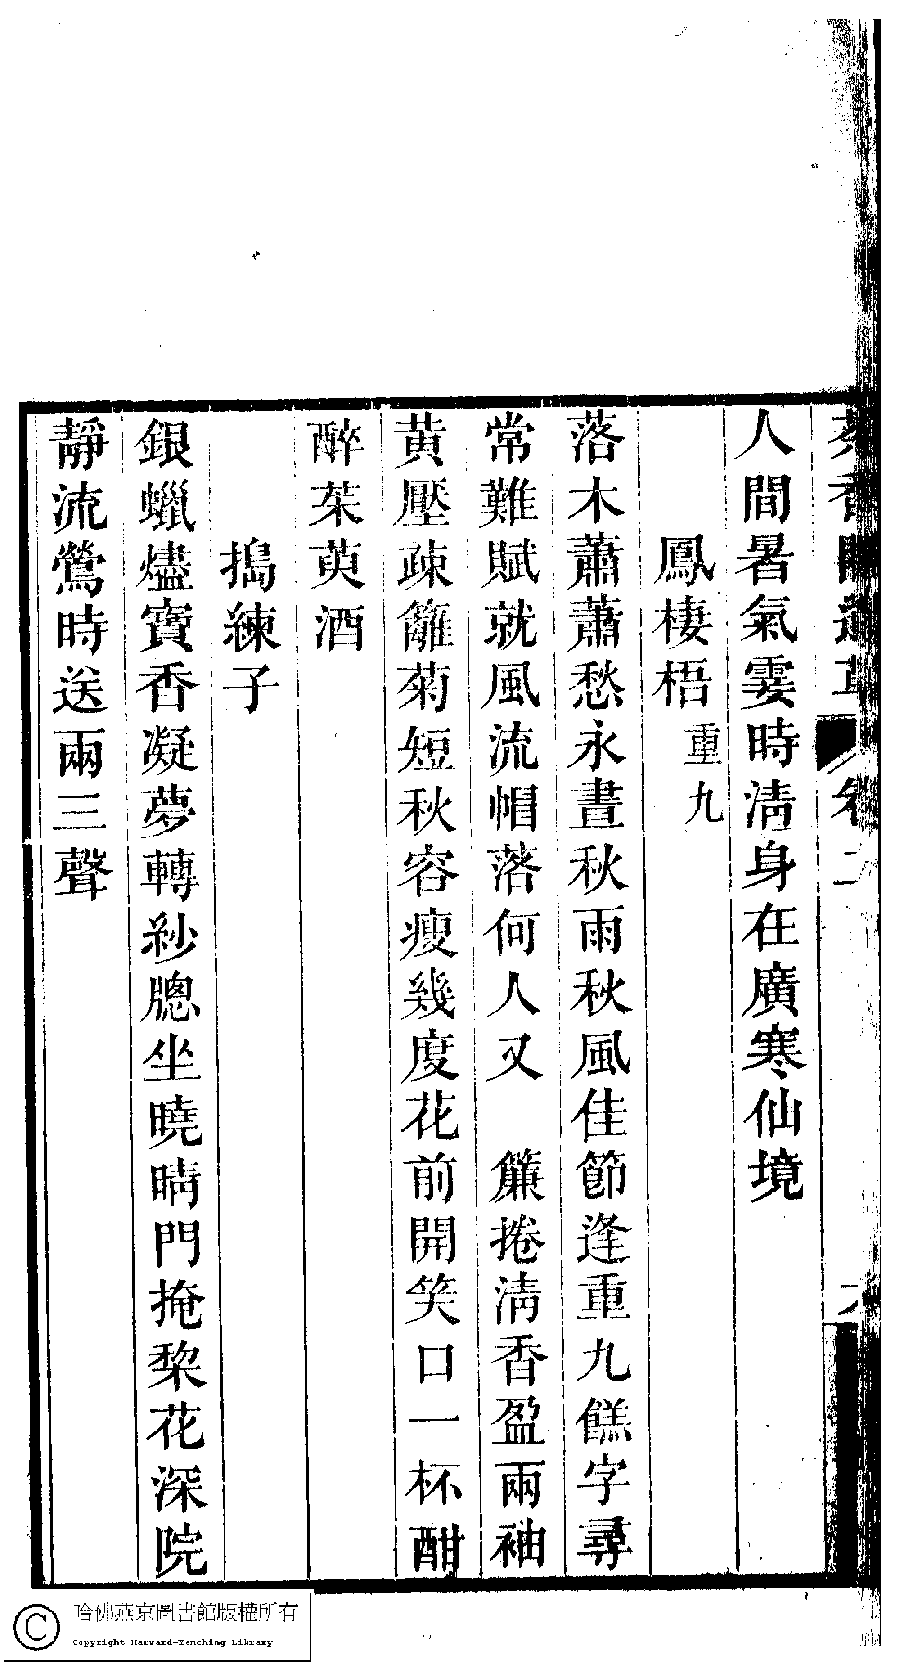 人間暑氣霎時淸身在廣寒仙境
鳳棲梧重九
落木蕭蕭愁永晝秋雨秋風佳節逢重九餻字尋
常難賦就風流帽落何人又　簾捲淸香盈兩袖
黃壓疎籬菊短秋容瘦幾度花前開笑口一杯酣
醉茱萸酒
搗練子
銀蠟燼寶香凝夢轉紗牕坐曉晴門掩棃花深院
靜流鶯時送兩三聲
哈佛燕京圖書館版權所有
Copyright Harvard-Yenching Library